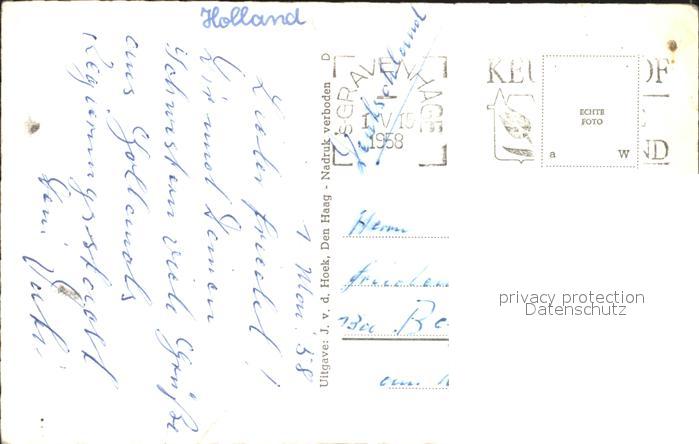 Holland
1 Mai. 58
Lieber Friedel!
Dir und Deinen
Schwistern viele Grüße
aus Hollands
Regierungsstadt
Dein Vati.
Uitgave: J. v. d. Hoek, Den Haag - Nadruk verboden D
'sGRAVENHAGE
1 V 15
1958
Deutschland
KEU OF
ND
ECHTE
FOTO
a W
Herrn
privacy protection
Datenschutz